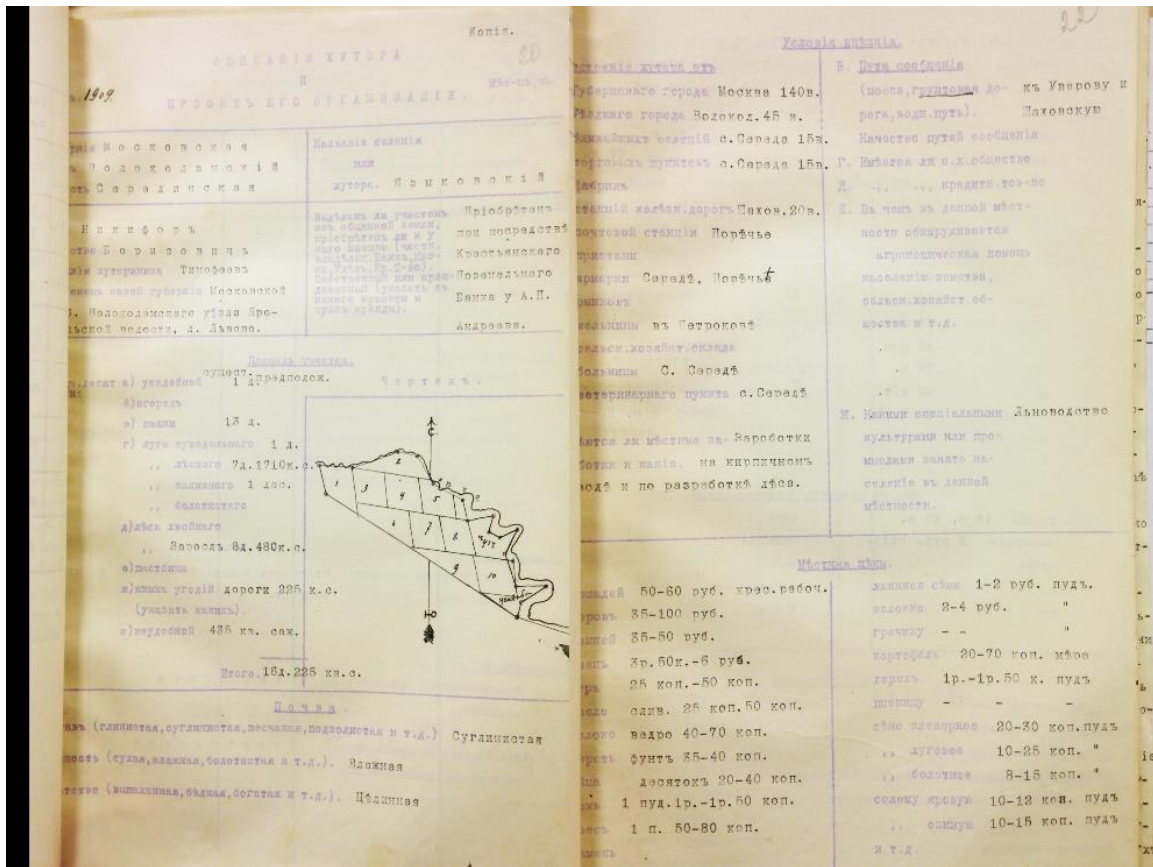 Копія.
20
ОПИСАНІЕ ХУТОРА
И
1909.
ПРОЭКТЪ ЕГО ОРГАНИЗАЦІИ.
Московская
Волоколамскій
Серединская
Названіе селенія
или
хутора. Языковскій
Никифоръ
Борисовичъ
хуторянина Тимофеевъ
какой губерніи Московской
Волоколамскаго уѣзда Яро-
польской волости, д. Львово.
Выдѣленъ ли участокъ
изъ общинной земли,
пріобрѣтенъ ли и у
Пріобрѣтенъ
при посредствѣ
Крестьянскаго
Поземельнаго
Банка у А.П.
Андреева.
Площадь участка.
сущест. предполож.
а) усадебной 1 д.
б) огородъ
в) пашни 13 д.
г) луга суходольнаго 1 д.
,, лѣсного 7д.1710к.с.
,, заливного 1 дес.
,, болотистаго
д) лѣса хвойнаго
,, Заросль 8д.480к.с.
е) пастбища
ж) иныхъ угодій дороги 225 к.с.
(указать какихъ).
з) неудобной 435 кв. саж.
Итого. 16д.225 кв.с.
Чертежъ.
С.
1 2 3 4 5 6 7 8 9 10
Ю
Почва.
(глинистая, суглинистая, песчаная, подзолистая и т.д.) Суглинистая
(сухая, влажная, болотистая и т.д.). Влажная
(выпаханная, бѣдная, богатая и т.д.). Цѣлинная
22
Условія внѣшнія.
хутора отъ
Губернскаго города Москва 140в.
Уѣзднаго города Волокол.45 в.
ближайшихъ селеній с.Середа 15в.
торговыхъ пунктовъ с.Середа 15в.
фабрикъ
станцій желѣзн.дорогъ Шахов.20в.
почтовой станціи Порѣчье
пристани
ярмарки Середѣ, Порѣчье
рынковъ
мельницы въ Петроковѣ
сельск.хозяйст.склада
больницы С. Середѣ
ветеринарнаго пункта с.Середѣ
ли мѣстные за- Зароботки
и какіе. на кирпичномъ
водѣ и по разработкѣ лѣса.
В. Пути сообщенія
(шоссе, грунтовая до- къ Уварову и
рога, водн.путь). Шаховскую
Качество путей сообщенія
Г. Имѣется ли с.х.общество
Д. ,, ,, кредитн.тов-во
Е. Въ чемъ въ данной мѣст-
ности обнаруживается
агрономическая помощь
населенію земства,
сельск.хозяйст.об-
щества и т.д.
Ж. Какими спеціальными Льноводство
культурами или про-
мыслами занято на-
селеніе въ данной
мѣстности.
Мѣстныя цѣны.
лошадей 50-60 руб. крес.рабоч.
коровъ 35-100 руб.
35-50 руб.
3р.50к.-6 руб.
25 коп.-50 коп.
слив. 25 коп.50 коп.
молоко ведро 40-70 коп.
шерсть фунтъ 35-40 коп.
яйца десятокъ 20-40 коп.
1 пуд.1р.-1р.50 коп.
овесъ 1 п. 50-80 коп.
ячмень
льняное сѣмя 1-2 руб. пудъ.
волокно 2-4 руб. "
гречиху - - "
картофель 20-70 коп. мѣра
горохъ 1р.-1р.50 к. пудъ
пшеницу - - -
сѣно клеверное 20-30 коп.пудъ
,, луговое 10-25 коп. "
,, болотное 8-15 коп. "
солому яровую 10-12 коп. пудъ
,, озимую 10-15 коп. пудъ
и т.д.